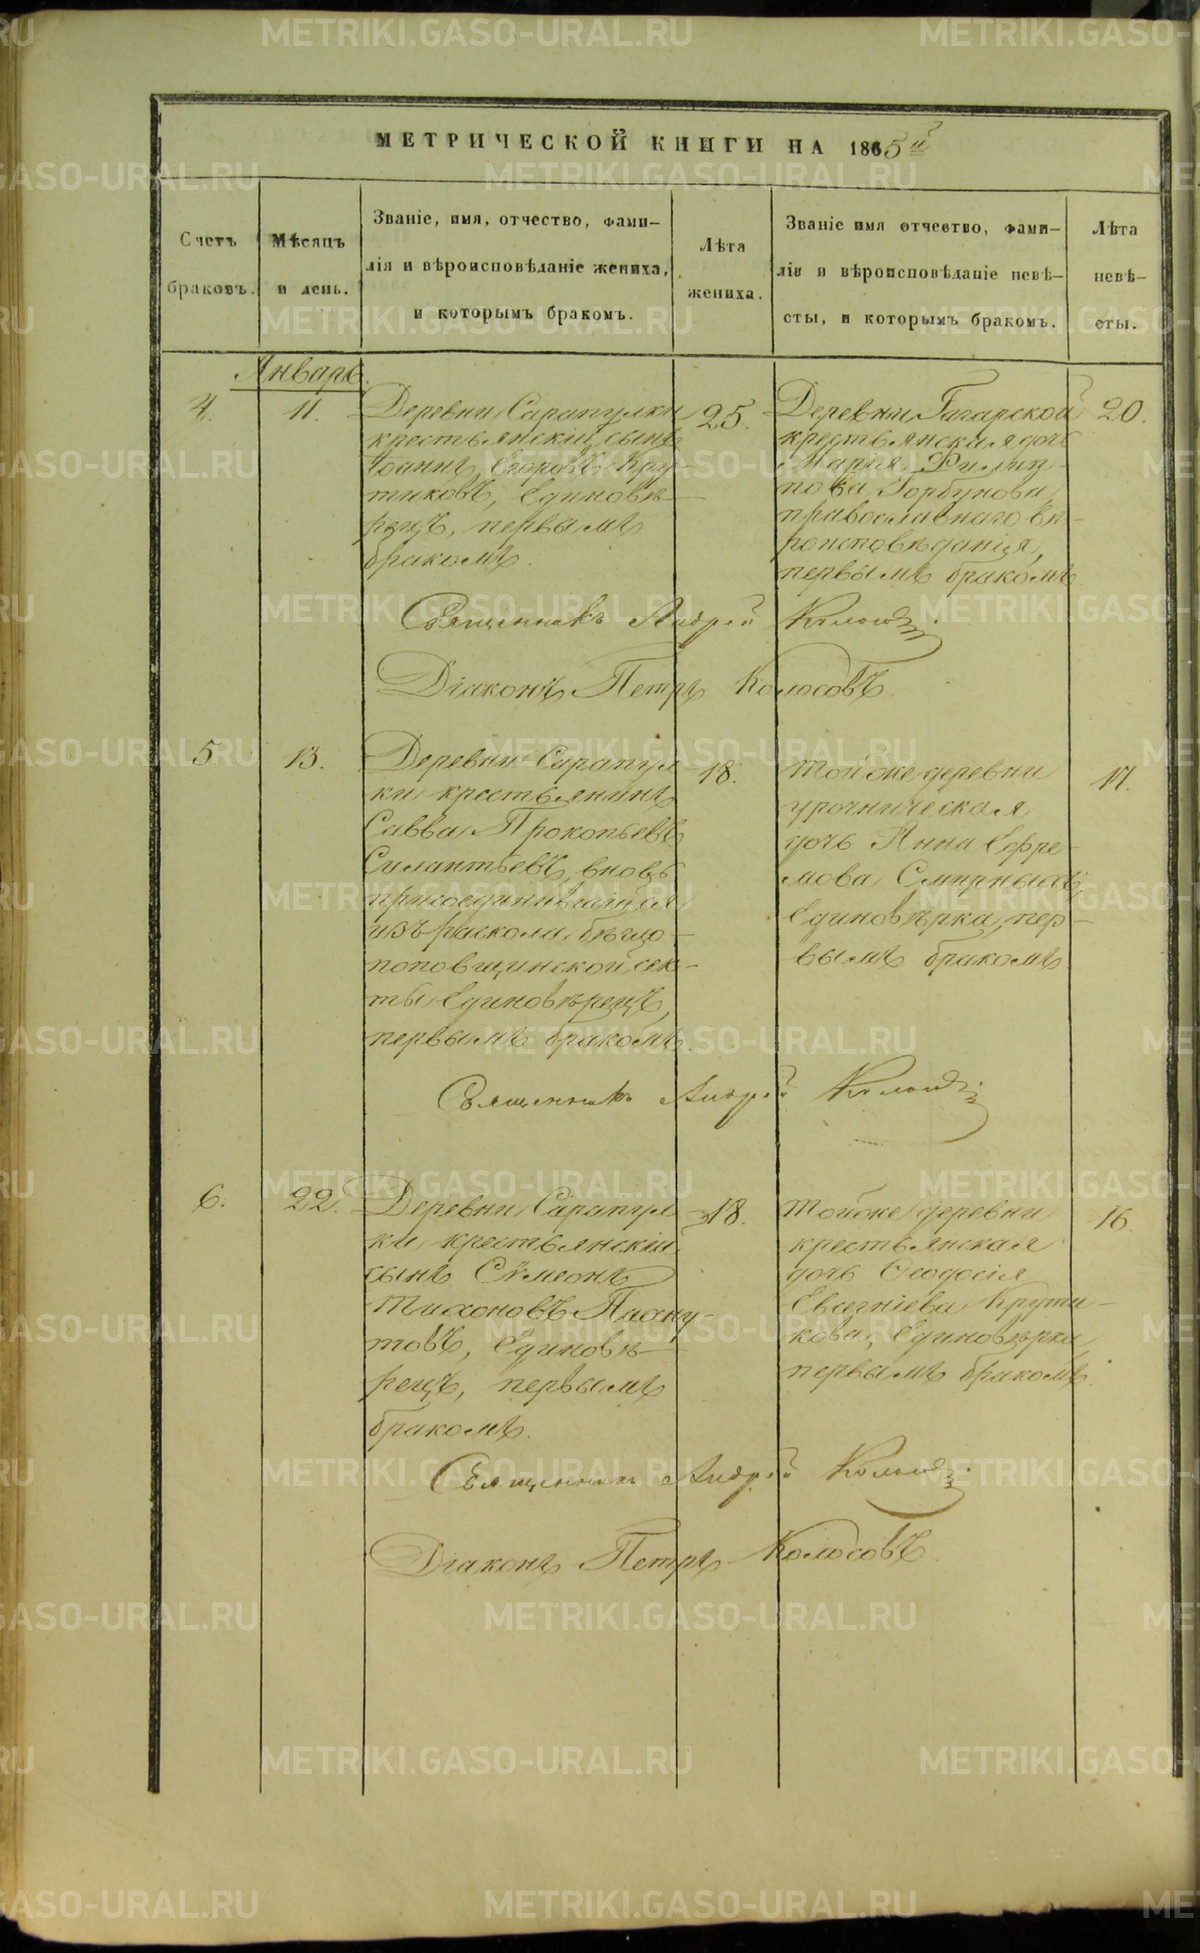 МЕТРИЧЕСКОЙ КНИГИ НА 1865й
Счетъ
браковъ.
Мѣсяцъ
и день.
Званіе, имя, отчество, фами-
лія и вѣроисповѣданіе жениха,
и которымъ бракомъ.
Лѣта
жениха.
Званіе имя отчество, фами-
лія и вѣроисповѣданіе невѣ-
сты, и которымъ бракомъ.
Лѣта
невѣ-
сты.
Январь.
4.
11.
Деревни Сарапулки
крестьянскій сынъ
Іоаннъ Егоровъ Кру-
тиковъ, Единовѣ-
рецъ, первымъ
бракомъ.
25.
Деревни Гагарской
крестьянская дочь
Марія Филип-
пова Горбунова,
православнаго вѣ-
роисповѣданія,
первымъ бракомъ
20.
Священникъ Андрей
Діаконъ Петръ Колосовъ.
5.
13.
Деревни Сарапул-
ки крестьянинъ
Савва Прокопьевъ
Силантьевъ, вновь
присоединившійся
изъ раскола бѣгло-
поповщинской сек-
ты Единовѣрецъ,
первымъ бракомъ.
18.
Тойже деревни
урочническая
дочь Анна Ефре-
мова Смирныхъ,
Единовѣрка, пер-
вымъ бракомъ
17.
Священникъ Андрей
6.
22.
Деревни Сарапул-
ки крестьянскій
сынъ Сѵмеонъ
Тихоновъ Пахну-
товъ, Единовѣ-
рецъ, первымъ
бракомъ.
18.
Тойже деревни
крестьянская
дочь Ѳеодосія
Евсегніева Крути-
кова, Единовѣрка,
первымъ бракомъ.
16.
Священникъ Андрей
Діаконъ Петръ Колосовъ.
METRIKI.GASO-URAL.RU